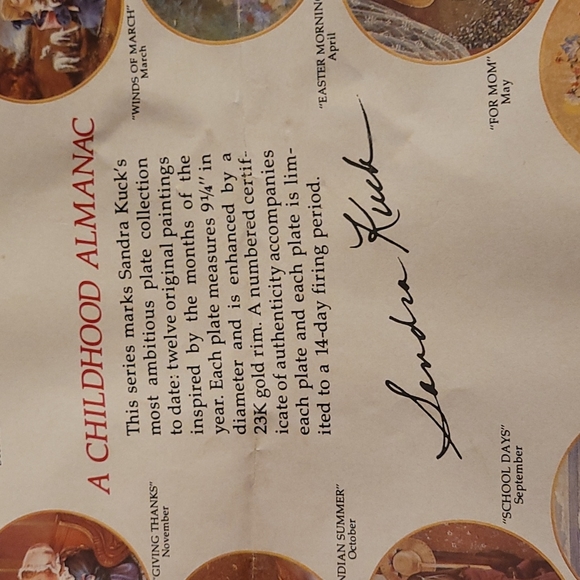 A CHILDHOOD ALMANAC
This series marks Sandra Kuck's
most ambitious plate collection
to date: twelve original paintings
inspired by the months of the
year. Each plate measures 9¼" in
diameter and is enhanced by a
23K gold rim. A numbered certif-
icate of authenticity accompanies
each plate and each plate is lim-
ited to a 14-day firing period.
Sandra Kuck
"WINDS OF MARCH"
March
"EASTER MORNING
April
"FOR MOM"
May
"SCHOOL DAYS"
September
NDIAN SUMMER"
October
GIVING THANKS"
November